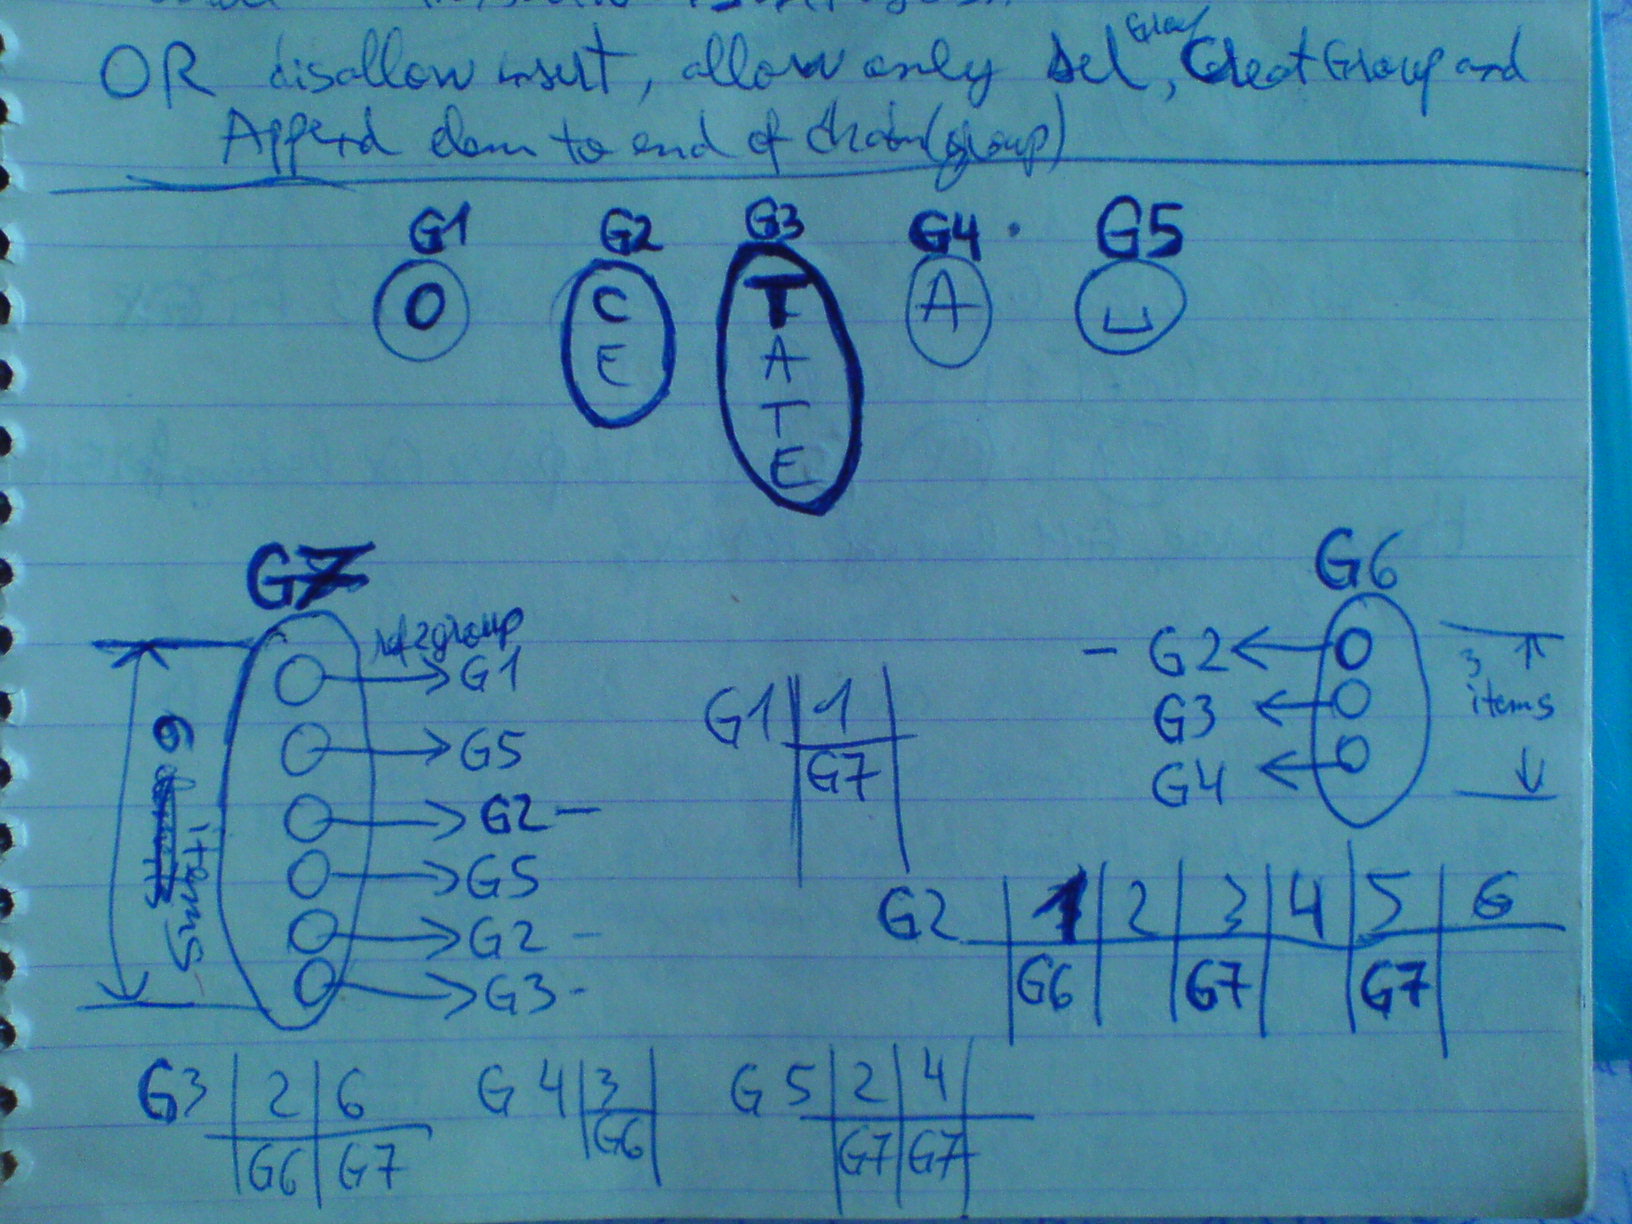 OR disallow insert, allow only del Group, Creat Group and
Append elem to end of chain (group)
G1 G2 G3 G4 G5
O C T A ␣
E A
T
E
G7 G6
ref2group
G1
G5
G2 -
G5
G2 -
G3 -
6
items
- G2
G3
G4
3
items
G1 1
G7
G2 1 2 3 4 5 6
G6 G7 G7
G3 2 6
G6 G7
G4 3
G6
G5 2 4
G7 G7